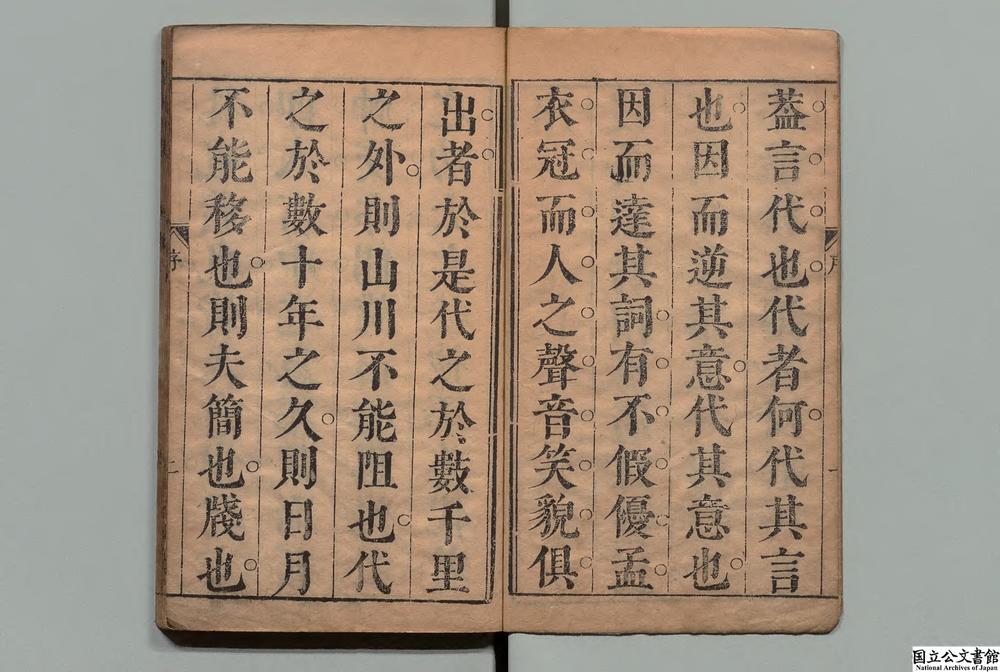 葢言代也代者何代其言
也因而逆其意代其意也
因而達其詞有不假優孟
衣冠而人之聲音笑貌俱
出者於是代之於數千里
之外則山川不能阻也代
之於數十年之久則日月
不能移也則夫簡也牋也
序
国立公文書館
National Archives of Japan